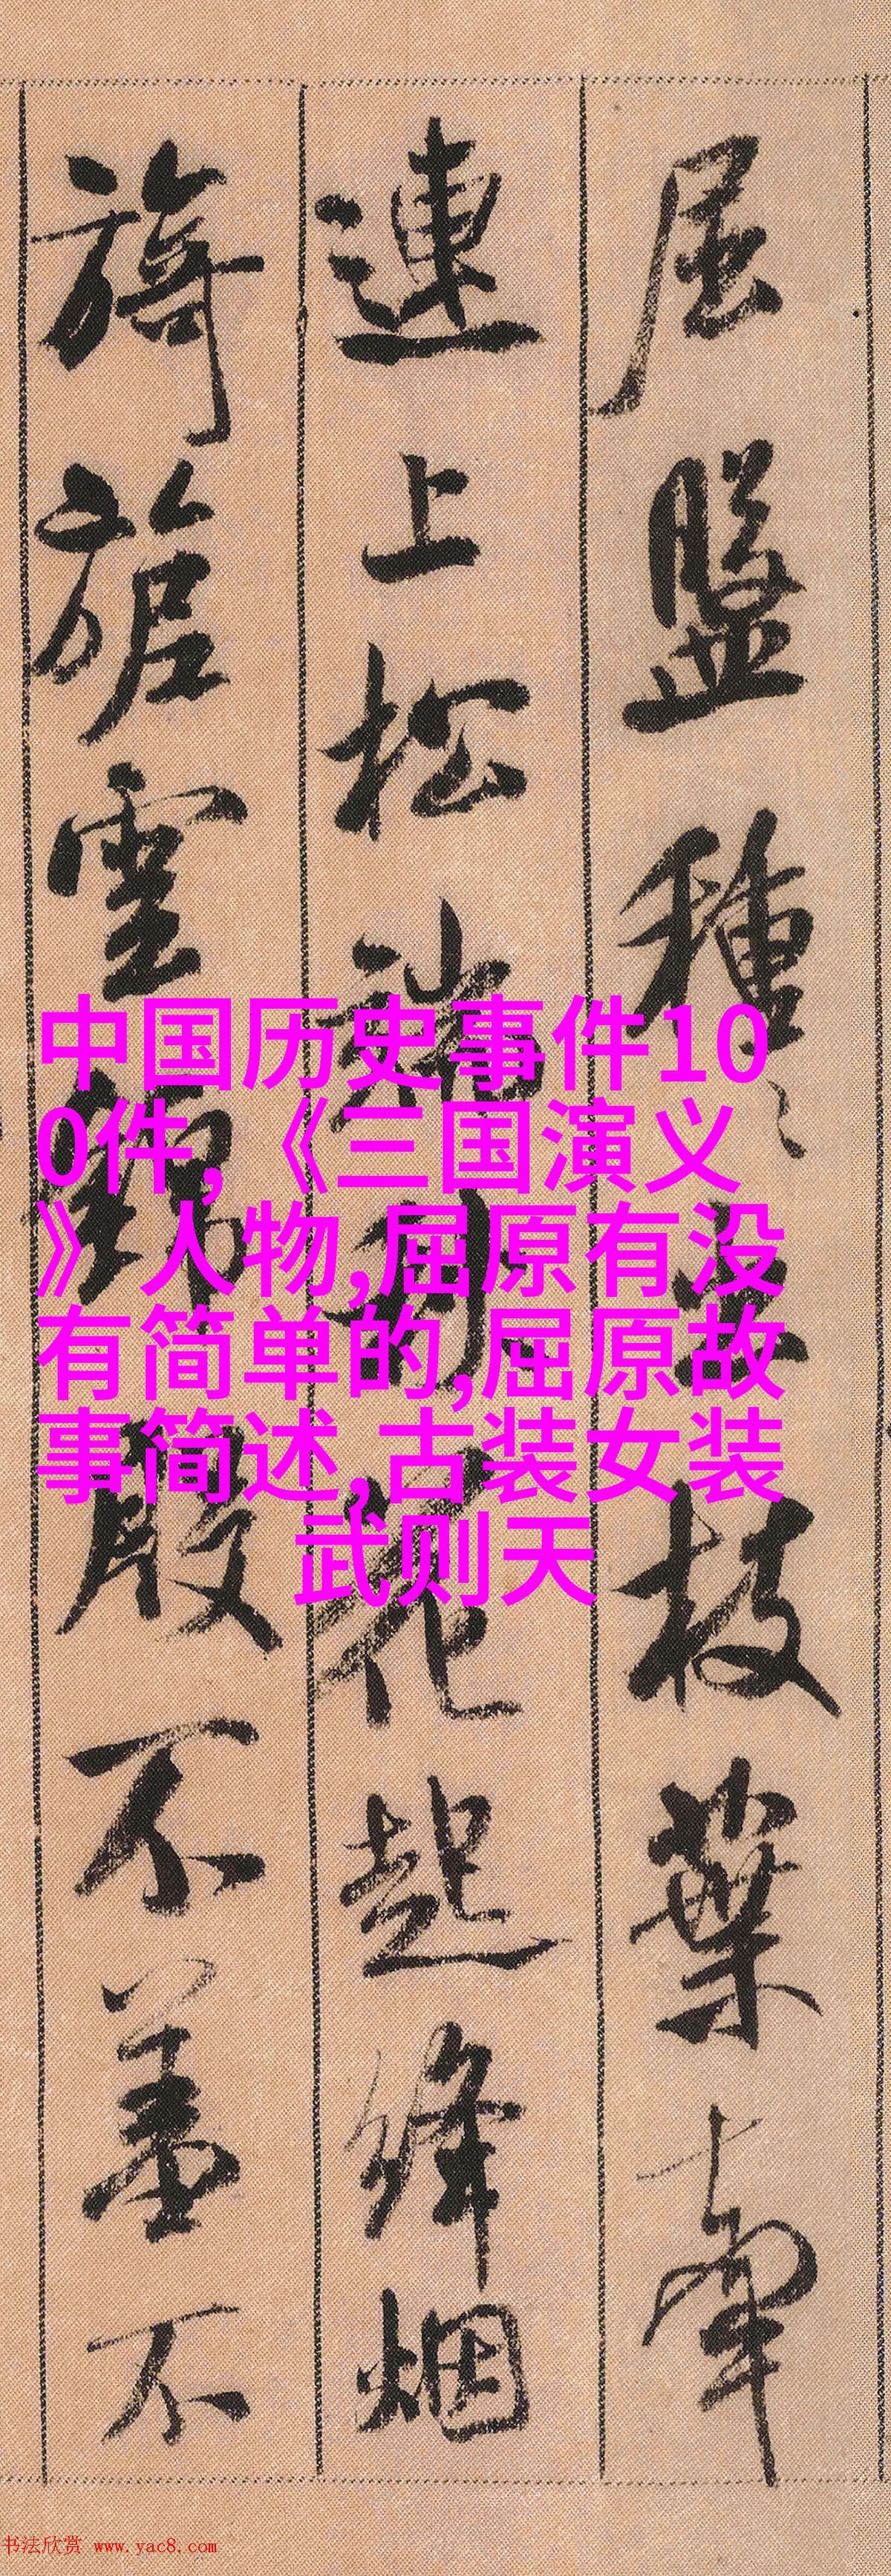 屈盤種々出枝葉牽
連上松端秋花起絳烟
旖旎雲錦殷不羞不
中国历史事件10
0件,《三国演义
》人物,屈原有没
有简单的,屈原故
事简述,古装女装
武则天
书法欣赏 www.yac8.com